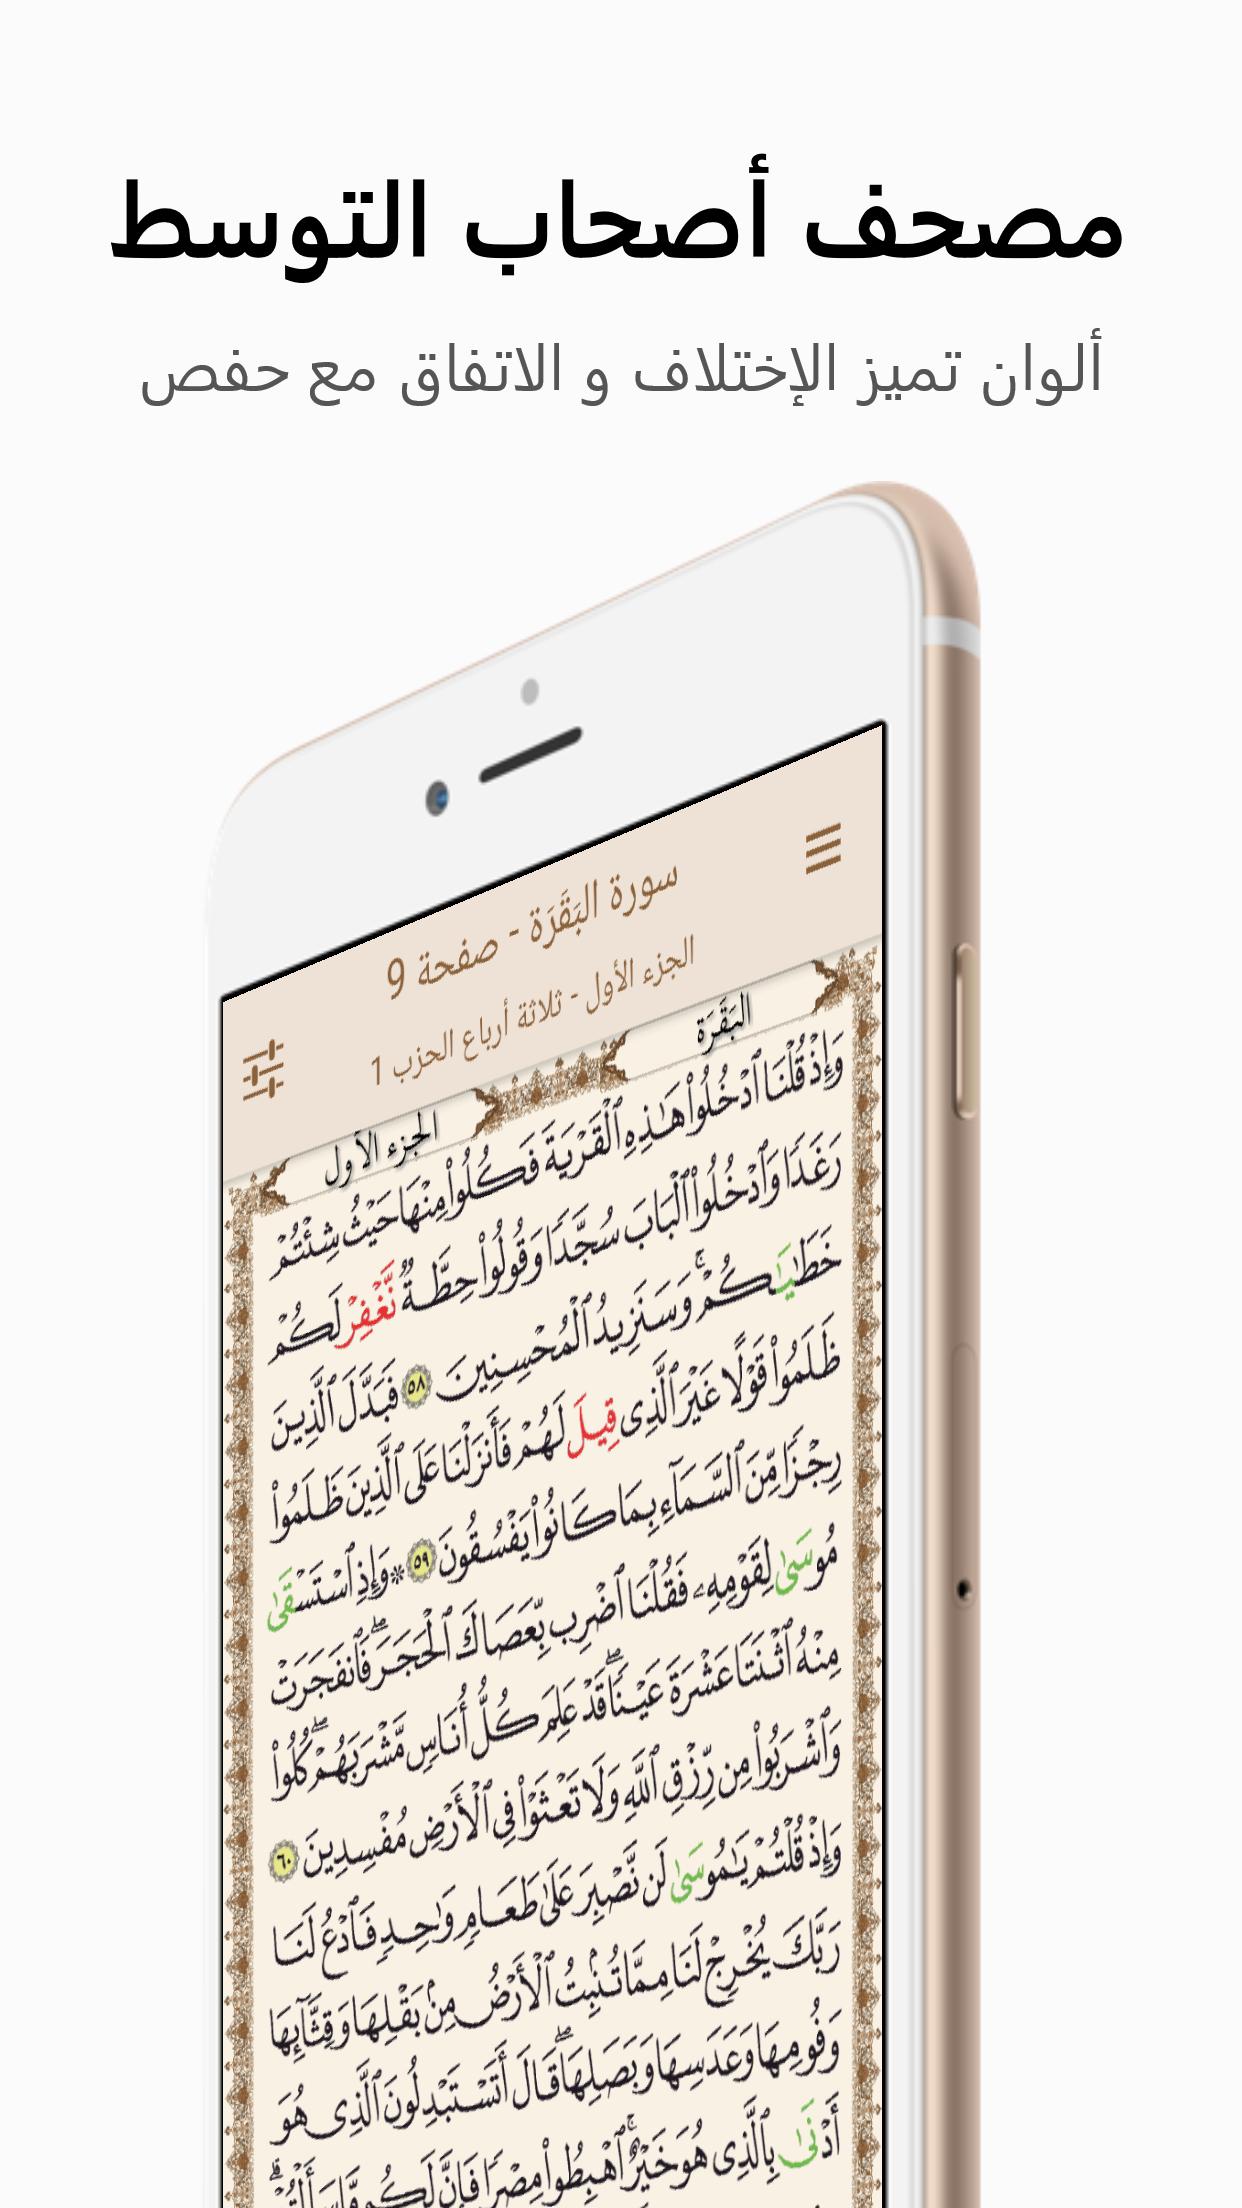 مصحف أصحاب التوسط
ألوان تميز الإختلاف و الاتفاق مع حفص
سورة البَقَرَة - صفحة 9
الجزء الأول - ثلاثة أرباع الحزب 1
البَقَرَة
الجزء الأول
وَإِذْ قُلْنَا ٱدْخُلُوا۟ هَـٰذِهِ ٱلْقَرْيَةَ فَكُلُوا۟ مِنْهَا حَيْثُ شِئْتُمْ
رَغَدًا وَٱدْخُلُوا۟ ٱلْبَابَ سُجَّدًا وَقُولُوا۟ حِطَّةٌ نَّغْفِرْ لَكُمْ
خَطَـٰيَـٰكُمْ ۚ وَسَنَزِيدُ ٱلْمُحْسِنِينَ ٥٨ فَبَدَّلَ ٱلَّذِينَ
ظَلَمُوا۟ قَوْلًا غَيْرَ ٱلَّذِى قِيلَ لَهُمْ فَأَنزَلْنَا عَلَى ٱلَّذِينَ ظَلَمُوا۟
رِجْزًا مِّنَ ٱلسَّمَآءِ بِمَا كَانُوا۟ يَفْسُقُونَ ٥٩ * وَإِذِ ٱسْتَسْقَىٰ
مُوسَىٰ لِقَوْمِهِۦ فَقُلْنَا ٱضْرِب بِّعَصَاكَ ٱلْحَجَرَ ۖ فَٱنفَجَرَتْ
مِنْهُ ٱثْنَتَا عَشْرَةَ عَيْنًا ۖ قَدْ عَلِمَ كُلُّ أُنَاسٍ مَّشْرَبَهُمْ ۖ كُلُوا۟
وَٱشْرَبُوا۟ مِن رِّزْقِ ٱللَّهِ وَلَا تَعْثَوْا۟ فِى ٱلْأَرْضِ مُفْسِدِينَ ٦٠
وَإِذْ قُلْتُمْ يَـٰمُوسَىٰ لَن نَّصْبِرَ عَلَىٰ طَعَامٍ وَٰحِدٍ فَٱدْعُ لَنَا
رَبَّكَ يُخْرِجْ لَنَا مِمَّا تُنۢبِتُ ٱلْأَرْضُ مِنۢ بَقْلِهَا وَقِثَّآئِهَا
وَفُومِهَا وَعَدَسِهَا وَبَصَلِهَا ۖ قَالَ أَتَسْتَبْدِلُونَ ٱلَّذِى هُوَ
أَدْنَىٰ بِٱلَّذِى هُوَ خَيْرٌ ۚ ٱهْبِطُوا۟ مِصْرًا فَإِنَّ لَكُم مَّا سَأَلْتُمْ ۗ